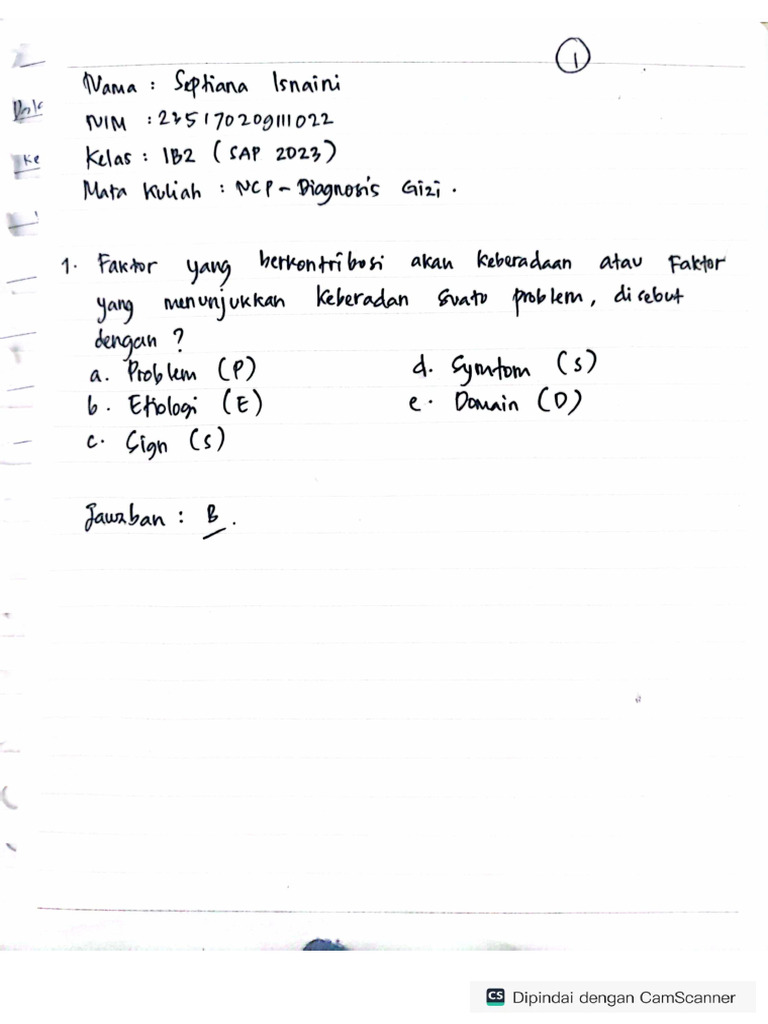 1
Nama : Septiana Isnaini
NIM : 235170209111022
Kelas : 1B2 (SAP 2023)
Mata Kuliah : NCP - Diagnosis Gizi.
1. Faktor yang berkontribusi akan keberadaan atau Faktor
yang menunjukkan keberadan suatu problem, disebut
dengan ?
a. Problem (P)
b. Etiologi (E)
c. Sign (S)
d. Symtom (S)
e. Domain (D)
Jawaban : B.
Ke
CS Dipindai dengan CamScanner